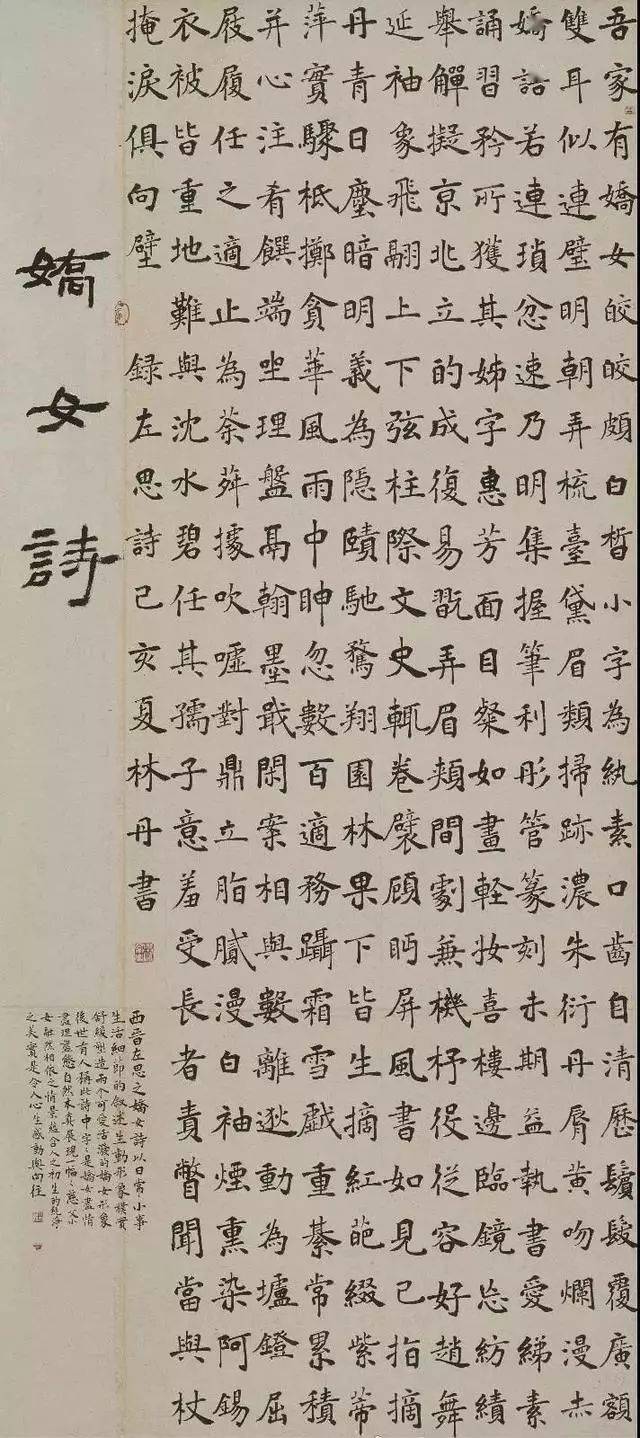 吾家有嬌女皎皎頗白皙小字為紈素口齒自清歷鬢髮覆廣額
雙耳似連璧明朝弄梳臺黛眉類掃跡濃朱衍丹脣黃吻爛漫赤
嬌語若連瑣忿速乃明集握筆利彤管篆刻未期益執書愛綈素
誦習矜所獲其姊字惠芳面目粲如畫輕妝喜樓邊臨鏡忘紡績
舉觶擬京兆立的成復易翫弄眉頰間劇兼機杼役從容好趙舞
延袖象飛翮上下弦柱際文史輒卷襞顧眄屏風書如見已指摘
丹青日塵暗明義為隱賾馳騖翔園林果下皆生摘紅葩綴紫蒂
萍實驟柢擲貪華風雨中眒忽數百適務躡霜雪戲重綦常累積
并心注肴饌端坐理盤鬲翰墨戢閑案相與數離逖動為壚鐙屈
屐履任之適止為荼荈據吹噓對鼎立脂膩漫白袖煙熏染阿錫
衣被皆重地難與沈水碧任其孺子意羞受長者責瞥聞當與杖
掩淚俱向壁 録左思詩己亥夏林丹書
嬌女詩
西晉左思之嬌女詩以日常小事
生活細節的叙述生動形象樸實
舒緩塑造兩个可愛活潑的嬌女形象
後世有人稱此詩中字字是嬌女盡情
盡理盡態自然本真展現一幅慈父小
女相依之情景蘊含人之初生的純淨
之美實是令人心生感動與向往